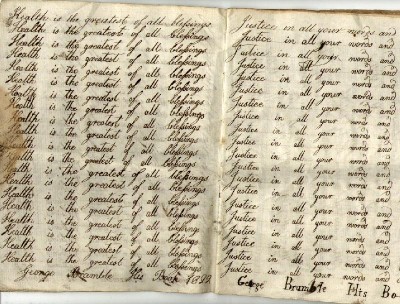 Health is the greatest of all blessings
Health is the greatest of all blessings
Health is the greatest of all blessings
Health is the greatest of all blessings
Health is the greatest of all blessings
Health is the greatest of all blessings
Health is the greatest of all blessings
Health is the greatest of all blessings
Health is the greatest of all blessings
Health is the greatest of all blessings
Health is the greatest of all blessings
Health is the greatest of all blessings
Health is the greatest of all blessings
Health is the greatest of all blessings
Health is the greatest of all blessings
Health is the greatest of all blessings
Health is the greatest of all blessings
Health is the greatest of all blessings
Health is the greatest of all blessings
Health is the greatest of all blessings
George Bramble His Book
Justice in all your words and
Justice in all your words and
Justice in all your words and
Justice in all your words and
Justice in all your words and
Justice in all your words and
Justice in all your words and
Justice in all your words and
Justice in all your words and
Justice in all your words and
Justice in all your words and
Justice in all your words and
Justice in all your words and
Justice in all your words and
Justice in all your words and
Justice in all your words and
Justice in all your words and
Justice in all your words and
Justice in all your words and
Justice in all your words and
George Bramble His Bo